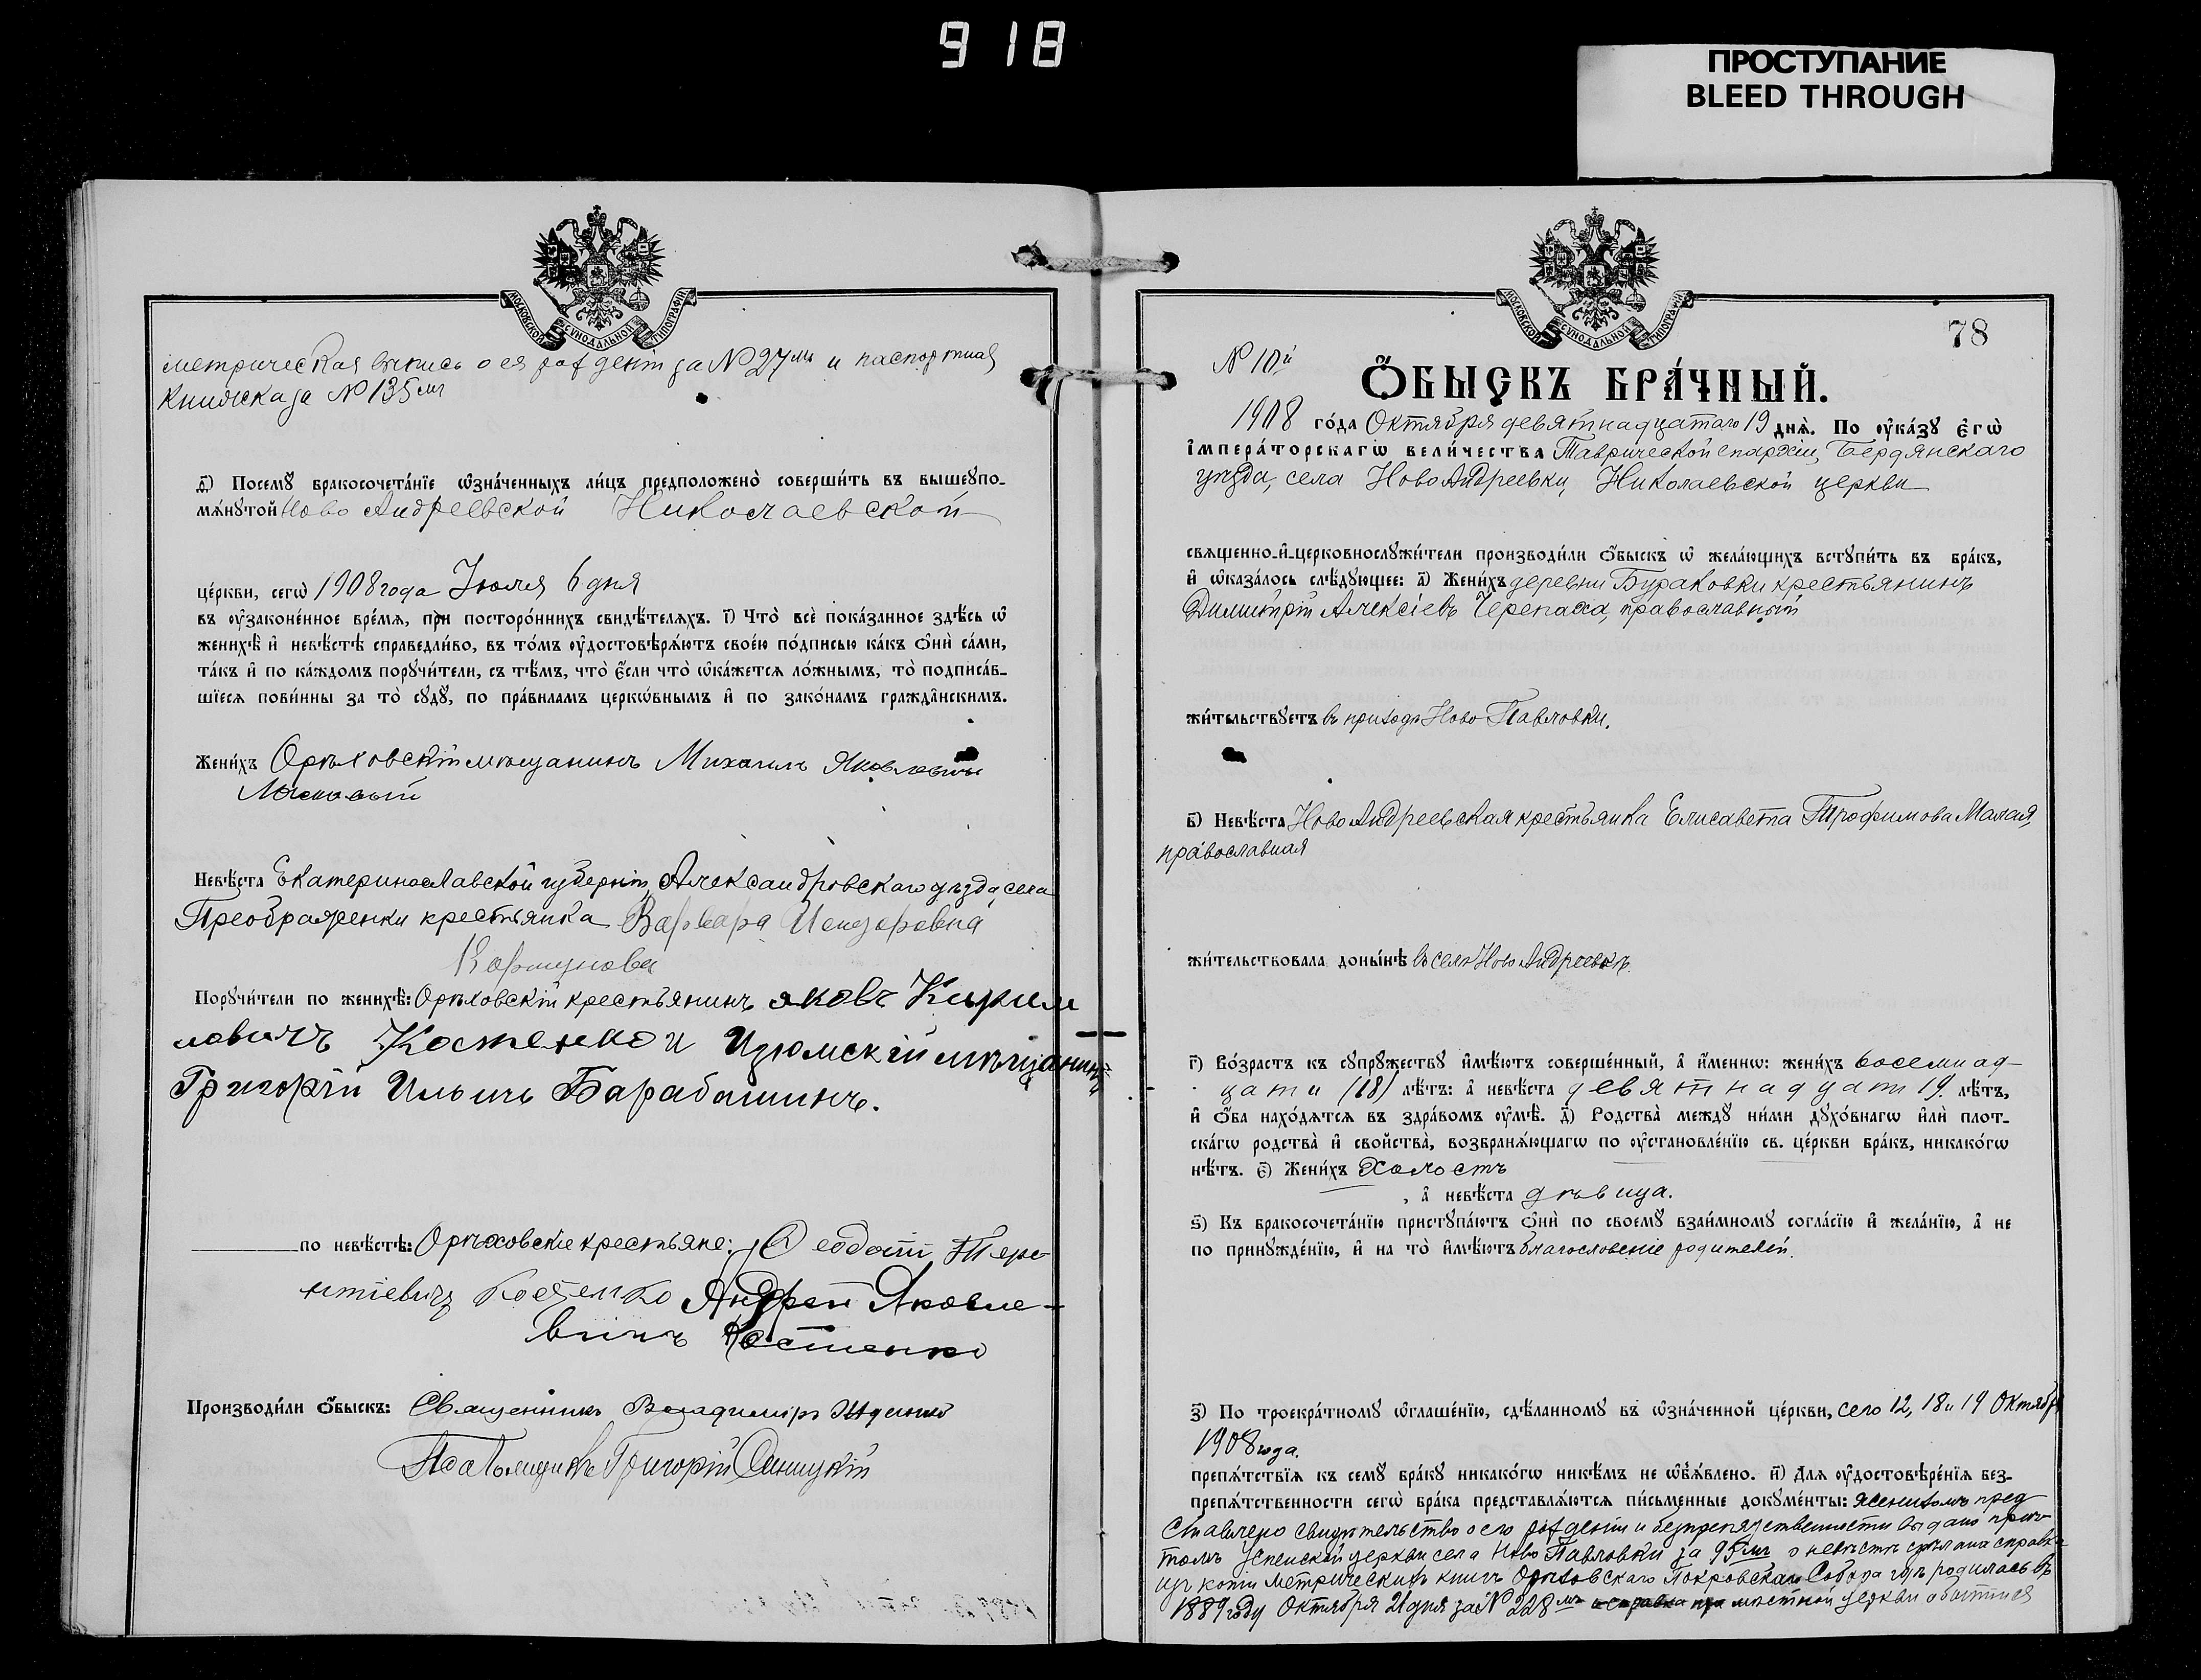 918
ПРОСТУПАНИЕ
BLEED THROUGH
МОСКОВСКОЙ СѴНОДАЛЬНОЙ ТИПОГРАФІИ
метрическая выпись о ея рожденіи за № 27мъ и паспортная
книжка за № 135мъ
д҃) Посемꙋ̀ бракосочета́нїе ѡ҆зна́ченныхъ ли́цъ предположено̀ соверши́ть въ вышеꙋпо-
мѧ́нꙋтой Ново Андреевской Николаевской
це́ркви, сегѡ̀ 1908 года Іюля 6 дня
въ ᲂу҆зако́ненное вре́мѧ, при посторо́ннихъ свидѣ́телѧхъ. і҃) Что̀ всѐ пока́занное здѣ́сь ѡ҆
женихѣ̀ и҆ невѣ́стѣ справедли́во, въ то́мъ ᲂу҆достовѣрѧ́ютъ свое́ю по́дписью ка́къ ѻ҆нѝ са́ми,
та́къ и҆ по ка́ждомъ порꙋчи́тели, съ тѣ́мъ, что̀ є҆́сли что̀ ѡ҆ка́жетсѧ ло́жнымъ, то̀ подписа́в-
шїесѧ пови́нны за то̀ сꙋдꙋ̀, по пра́виламъ церкѡ́внымъ и҆ по зако́намъ гражда̑нскимъ.
Жени́хъ Орѣховскій мѣщанинъ Михаилъ Яковлевичъ
Невѣ́ста Екатеринославской губерніи, Александровскаго уѣзда, села
Преображенки крестьянка Варвара Исидоровна
Коршунова
Порꙋчи́тели по женихѣ̀: Орѣховскій крестьянинъ Яковъ Кирил
ловичъ Костенко и Изюмскій мѣщанинъ
Григорій Ильичъ Барабашинъ.
по невѣ́стѣ: Орѣховскіе крестьяне: Ѳеодотій Тере
нтіевичъ Костенко Андрей Яковле-
вичъ Костенко
Производи́ли ѻ҆́быскъ: Священникъ Владиміръ
Псаломщикъ Григорій Синицкій
МОСКОВСКОЙ СѴНОДАЛЬНОЙ ТИПОГРАФІИ
78
№ 10й
Ѻ҆́БЫСКЪ БРА́ЧНЫЙ.
1908 го́да Октября девятнадцатаго 19 днѧ̀. По ᲂу҆ка́зꙋ є҆гѡ̀
і҆мпера́торскагѡ вели́чества Таврической епархіи, Бердянскаго
уѣзда, села Ново Андреевки, Николаевской церкви
свѧщенно-и҆-церковнослꙋжи́тели производи́ли ѻ҆́быскъ ѡ҆ жела́ющихъ встꙋпи́ть въ бра́къ,
и҆ ѡ҆каза́лось слѣ́дꙋющее: а҃) Жени́хъ деревни Бураковки крестьянинъ
Димитрій Алексіевъ Черепаха, православный
жи́тельствꙋетъ въ приходѣ Ново Павловки.
в҃) Невѣ́ста Ново Андреевская крестьянка Елисавета Трофимова Малая,
православная
жи́тельствовала доны́нѣ въ селѣ Ново Андреевкѣ.
г҃) Во́зрастъ къ сꙋпрꙋ́жествꙋ и҆мѣ́ютъ соверше́нный, а҆ и҆́меннѡ: жени́хъ восемнад-
цати (18) лѣ́тъ: а҆ невѣ́ста девятнадцати 19. лѣ́тъ,
и҆ ѻ҆́ба нахо́дѧтсѧ въ здра́вомъ ᲂу҆мѣ̀. д҃) Родства̀ междꙋ̀ ни́ми дꙋхо́внагѡ и҆лѝ плот-
ска́гѡ родства̀ и҆ свойства̀, возбранѧ́ющагѡ по ᲂу҆становле́нїю св. це́ркви бра́къ, никако́гѡ
нѣ́тъ. є҃) Жени́хъ холостъ
, а҆ невѣ́ста дѣвица.
ѕ҃) Къ бракосочета́нїю пристꙋпа́ютъ ѻ҆нѝ по своемꙋ̀ взаи́мномꙋ согла́сїю и҆ жела́нїю, а҆ не
по принꙋжде́нїю, и҆ на то̀ и҆мѣ́ютъ благословеніе родителей.
з҃) По троекра́тномꙋ ѡ҆глаше́нїю, сдѣ́ланномꙋ въ ѡ҆зна́ченной це́ркви, сего 12, 18 и 19 Октября
1908 года.
препѧ́тствїѧ къ семꙋ̀ бра́кꙋ никако́гѡ никѣ́мъ не ѡ҆б̾ѧ́влено. и҃) Длѧ ᲂу҆достовѣре́нїѧ без-
препѧ́тственности сегѡ̀ бра́ка представлѧ́ютсѧ пи́сьменные докꙋме́нты: женихомъ пред
ставлено свидѣтельство о его рожденіи и безпрепятственности выдано прич-
томъ Успенской церкви села Ново Павловки за 95мъ о невѣстѣ сдѣлана справка
изъ копіи метрическихъ книгъ Орѣховскаго Покровскаго Собора гдѣ родилась въ
1889 году Октября 21 дня за № 228мъ мѣстной церкви о бытіи ея